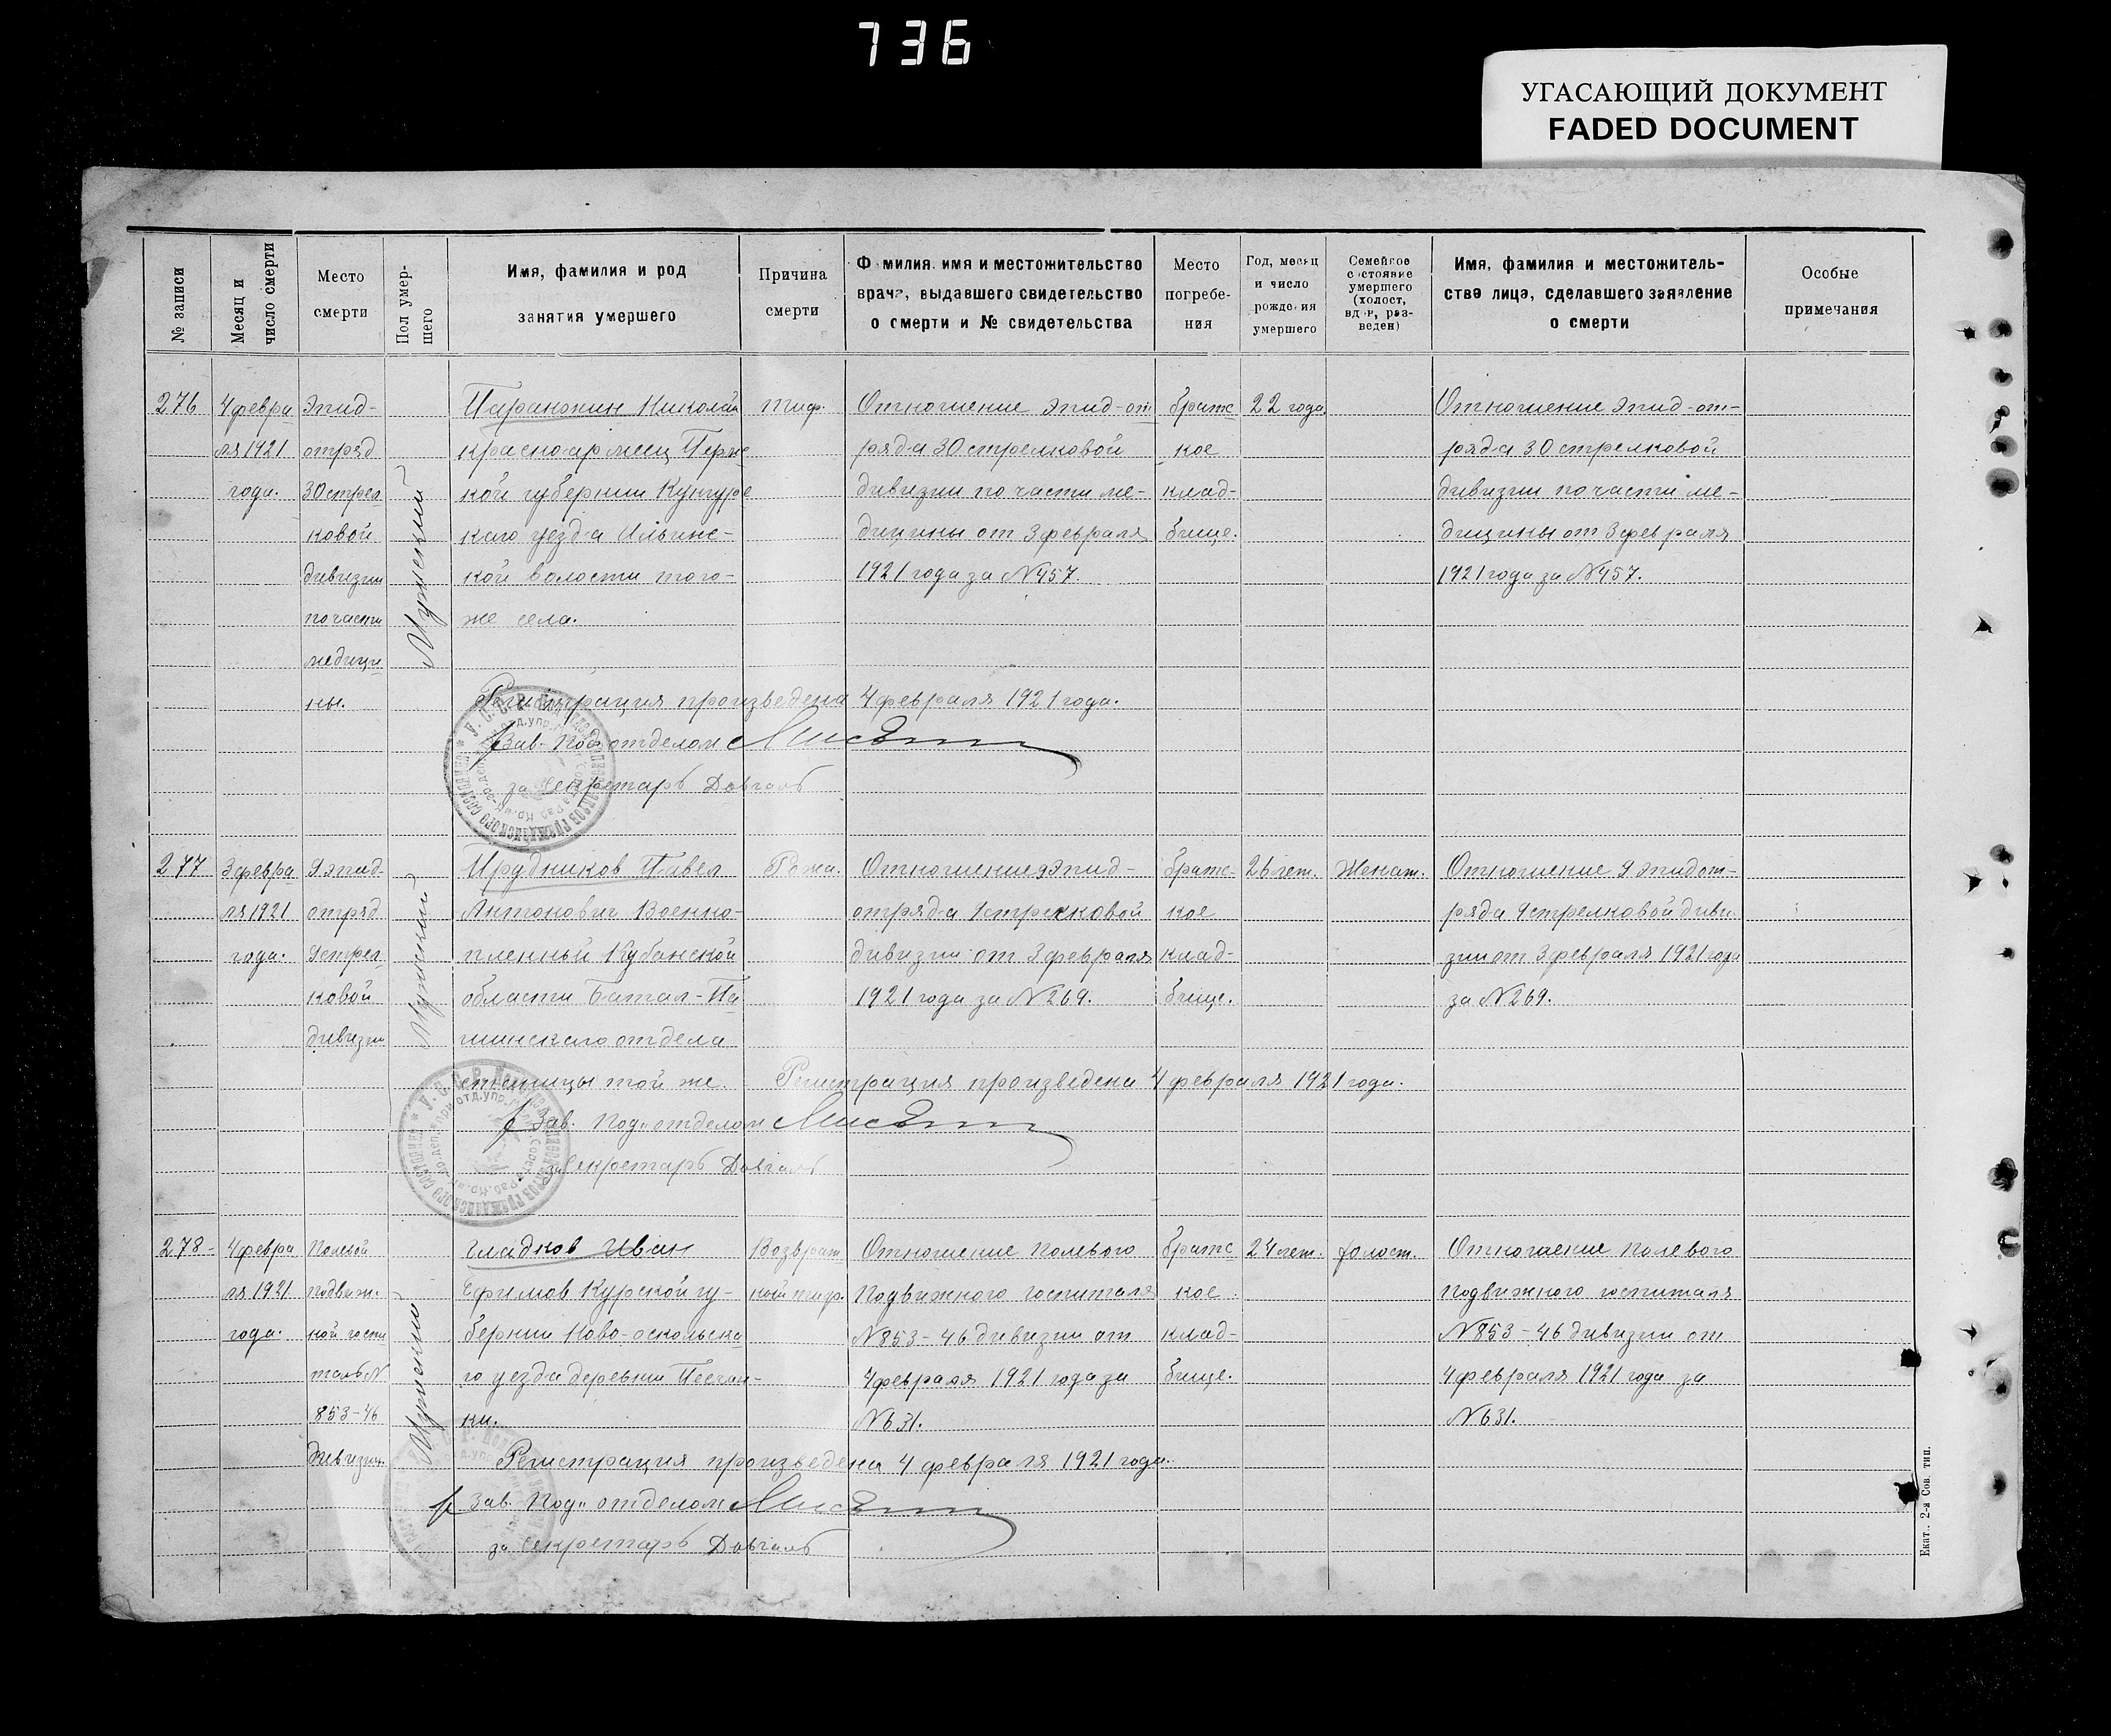 736
УГАСАЮЩИЙ ДОКУМЕНТ
FADED DOCUMENT
№ записи
Месяц и
число смерти
Место
смерти
Пол умер-
шего
Имя, фамилия и род
занятия умершего
Причина
смерти
Ф милия, имя и местожительство
врача, выдавшего свидетельство
о смерти и № свидетельства
Место
погребе-
ния
Год, месяц
и число
рождения
умершего
Семейное
состояние
умершего
(холост,
вдов, раз-
веден)
Имя, фамилия и местожитель-
ство лица, сделавшего заявление
о смерти
Особые
примечания
276
4 февра
ля 1921
года.
Эпид-
отряд
30 стрел
ковой
дивизии
по части
медици
ны.
Мужский
Николай
красноармеец Пермс
кой губернии Кунгурс
каго уезда Ильинс-
кой волости того-
же села.
тиф.
Отношение эпид-от
ряда 30 стрелковой
дивизии по части ме-
дицины от 3 февраля
1921 года за №457.
братс
кое
клад-
бище.
22 года
Отношение эпид-от-
ряда 30 стрелковой
дивизии по части ме-
дицины от 3 февраля
1921 года за №457.
Регистрация произведена 4 февраля 1921 года.
Зав. Под отделом
за Секретарь Довгаль
277
3 февра
ля 1921
года.
9 эпид-
отряд
9 стрел
ковой
дивизии
Мужский
Прудников Павел
Антонович Военно-
пленный Кубанской
области Батал-Па
шинскаго отдела
станицы той же.
Рожа.
Отношение 9 эпид-
отряда 9 стрелковой
дивизии от 3 февраля
1921 года за №269.
братс-
кое
клад-
бище.
26 лет.
Женат.
Отношение 9 эпидот-
ряда 9 стрелковой диви
зии от 3 февраля 1921 года
за №269.
Регистрация произведена 4 февраля 1921 года.
Зав. Под" отделом
за Секретарь Довгаль
278-
4 февра
ля 1921
года.
Полевой
подвиж.
ной госпи
таль №
853-46
дивизии.
Мужский
Гладков Иван
Ефимов Курской гу-
бернии Ново-оскольска
го уезда деревни Песчан-
ки.
Возврат
ный тиф.
Отношение полевого
подвижного госпиталя
№853-46 дивизии от
4 февраля 1921 года за
№631.
братс
кое
клад-
бище.
24 лет.
холост.
Отношение полевого
подвижного госпиталя
№853-46 дивизии от
4 февраля 1921 года за
№631.
Регистрация произведена 4 февраля 1921 года.
Зав. Под" отделом
за Секретарь Довгаль
Екат., 2-я Сов. тип.